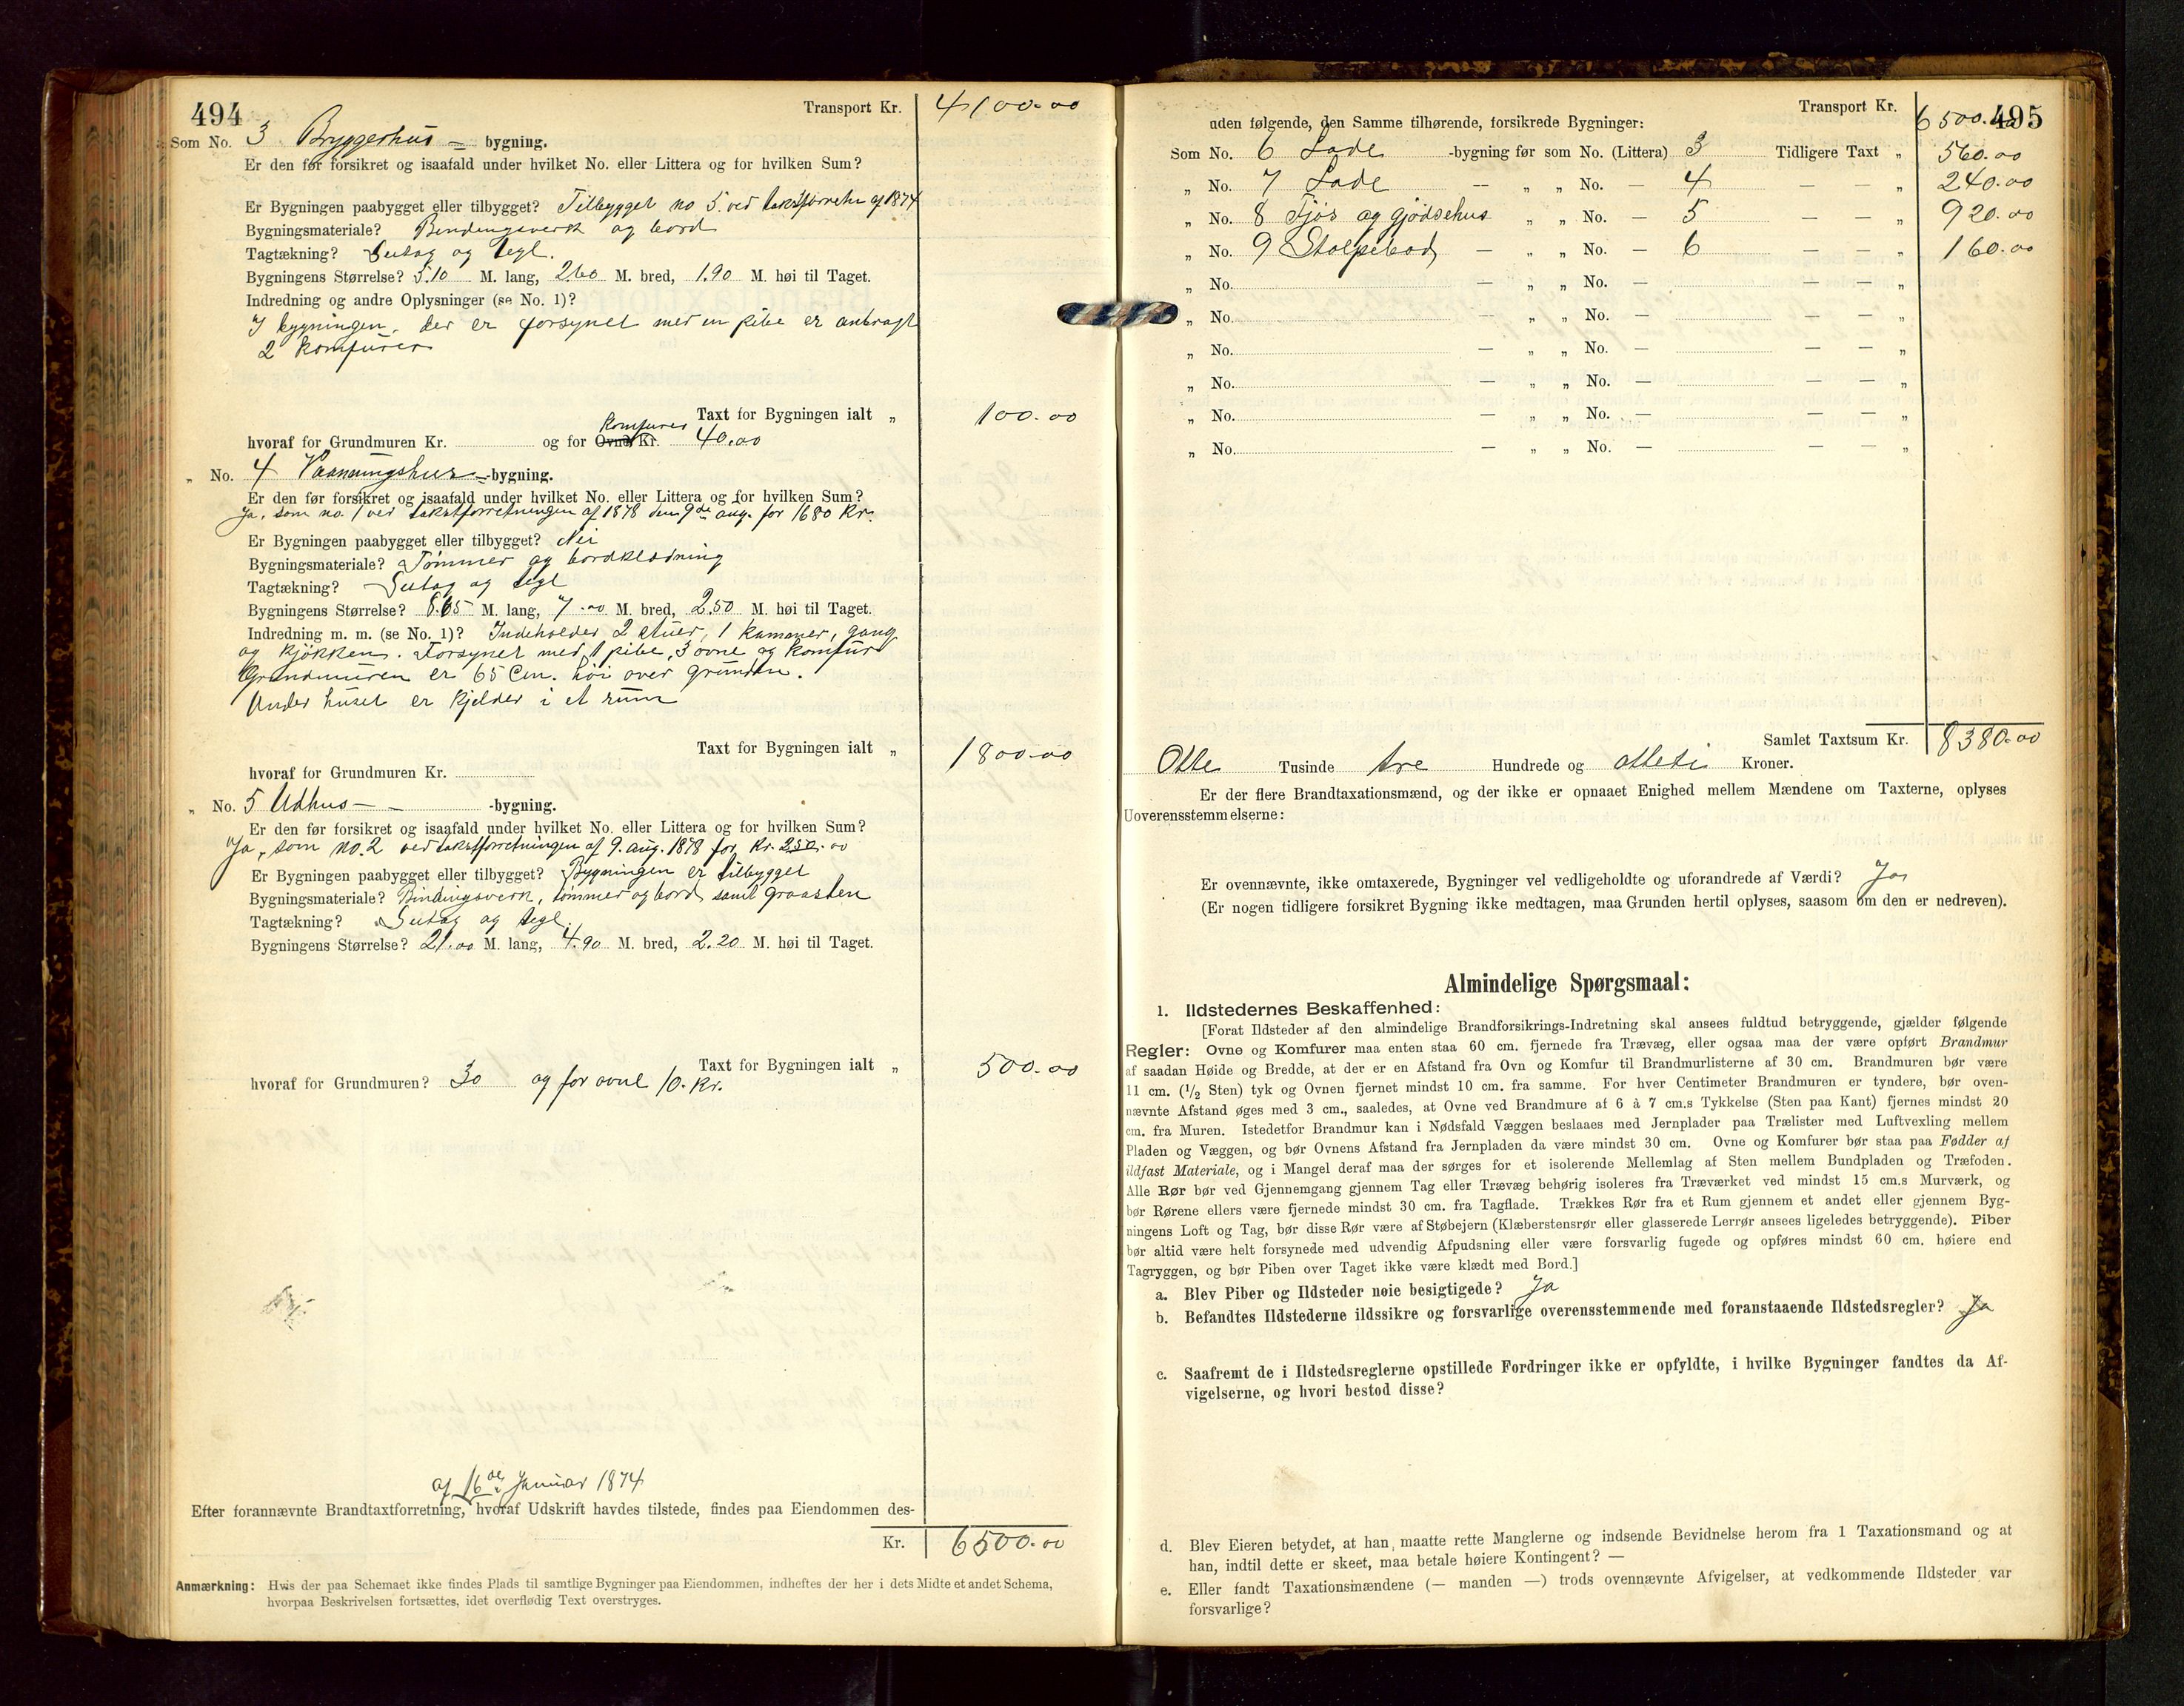 494
Transport Kr. 4100.00
Som No. 3 Bryggerhus - bygning.
Er den før forsikret og isaafald under hvilket No. eller Littera og for hvilken Sum?
Er Bygningen paabygget eller tilbygget? Tilbygget no 5 ved takstforretn af 1874
Bygningsmateriale? Bindingsverk og bord
Tagtækning? Sutag og tegl.
Bygningens Størrelse? 5.10 M. lang, 2.60 M. bred, 1.90 M. høi til Taget.
Indredning og andre Oplysninger (se No. 1)?
I bygningen, der er forsynet med en pibe er anbragt
2 komfurer
Taxt for Bygningen ialt „ 100.00
komfurer
hvoraf for Grundmuren Kr. og for Ovne Kr. 40.00
„ No. 4 Vaaningshus -bygning.
Er den før forsikret og isaafald under hvilket No. eller Littera og for hvilken Sum?
Ja, som no. 1 ved takstforretningen af 1878 den 9de aug. for 1680 Kr.
Er Bygningen paabygget eller tilbygget? Nei
Bygningsmateriale? Tømmer og bordklædning
Tagtækning? Sutag og tegl
Bygningens Størrelse? 8.65 M. lang, 7.00 M. bred, 2.50 M. høi til Taget.
Indredning m. m. (se No. 1)? Indeholder 2 stuer, 1 kammer, gang
og kjøkken. Forsynet med 1 pibe, 3 ovne og komfur
Grundmuren er 65 Cm. høi over grunden.
Under huset er kjelder i et rum
Taxt for Bygningen ialt „ 1800.00
hvoraf for Grundmuren Kr.
„ No. 5 Udhus - - -bygning.
Er den før forsikret og isaafald under hvilket No. eller Littera og for hvilken Sum?
Ja, som no. 2 ved takstforretningen af 9. aug. 1878 for Kr. 250.00
Er Bygningen paabygget eller tilbygget? Bygningen er tilbygget
Bygningsmateriale? Bindingsverk, tømmer og bord samt graasten
Tagtækning? Sutag og tegl.
Bygningens Størrelse? 21.00 M. lang, 4.90 M. bred, 2.20 M. høi til Taget.
Taxt for Bygningen ialt „ 500.00
hvoraf for Grundmuren? 30 og for ovne 10. Kr.
af 16de Januar 1874
Efter forannævnte Brandtaxtforretning, hvoraf Udskrift havdes tilstede, findes paa Eiendommen des-
Kr. 6500.00
Anmærkning: Hvis der paa Schemaet ikke findes Plads til samtlige Bygninger paa Eiendommen, indheftes der her i dets Midte et andet Schema,
hvorpaa Beskrivelsen fortsættes, idet overflødig Text overstryges.
495
Transport Kr. 6500.00
uden følgende, den Samme tilhørende, forsikrede Bygninger:
Som No. 6 Lade -bygning før som No. (Littera) 3 Tidligere Taxt „ 560.00
„ No. 7 Lade — „ „ No. — 4 — — „ 240.00
„ No. 8 Fjøs og gjødsehus „ „ No. — 5 — — „ 920.00
„ No. 9 Stolpebod — „ „ No. — 6 — — „ 160.00
„ No. — „ „ No. — — — „
„ No. — „ „ No. — — — „
„ No. — „ „ No. — — — „
„ No. — „ „ No. — — — „
„ No. — „ „ No. — — — „
„ No. — „ „ No. — — — „
Samlet Taxtsum Kr. 8380.00
Otte Tusinde tre Hundrede og otteti Kroner.
Er der flere Brandtaxationsmænd, og der ikke er opnaaet Enighed mellem Mændene om Taxterne, oplyses
Uoverensstemmelserne:
Er ovennævnte, ikke omtaxerede, Bygninger vel vedligeholdte og uforandrede af Værdi? Ja
(Er nogen tidligere forsikret Bygning ikke medtagen, maa Grunden hertil oplyses, saasom om den er nedreven).
Almindelige Spørgsmaal:
1. Ildstedernes Beskaffenhed:
[Forat Ildsteder af den almindelige Brandforsikrings-Indretning skal ansees fuldtud betryggende, gjælder følgende
Regler: Ovne og Komfurer maa enten staa 60 cm. fjernede fra Trævæg, eller ogsaa maa der være opført Brandmur
af saadan Høide og Bredde, at der er en Afstand fra Ovn og Komfur til Brandmurlisterne af 30 cm. Brandmuren bør være
11 cm. (1/2 Sten) tyk og Ovnen fjernet mindst 10 cm. fra samme. For hver Centimeter Brandmuren er tyndere, bør oven-
nævnte Afstand øges med 3 cm., saaledes, at Ovne ved Brandmure af 6 à 7 cm.s Tykkelse (Sten paa Kant) fjernes mindst 20
cm. fra Muren. Istedetfor Brandmur kan i Nødsfald Væggen beslaaes med Jernplader paa Trælister med Luftvexling mellem
Pladen og Væggen, og bør Ovnens Afstand fra Jernpladen da være mindst 30 cm. Ovne og Komfurer bør staa paa Fødder af
ildfast Materiale, og i Mangel deraf maa der sørges for et isolerende Mellemlag af Sten mellem Bundpladen og Træfoden.
Alle Rør bør ved Gjennemgang gjennem Tag eller Trævæg behørig isoleres fra Træværket ved mindst 15 cm.s Murværk, og
bør Rørene ellers være fjernede mindst 30 cm. fra Tagflade. Trækkes Rør fra et Rum gjennem et andet eller gjennem Byg-
ningens Loft og Tag, bør disse Rør være af Støbejern (Klæberstensrør eller glasserede Lerrør ansees ligeledes betryggende). Piber
bør altid være helt forsynede med udvendig Afpudsning eller være forsvarlig fugede og opføres mindst 60 cm. høiere end
Tagryggen, og bør Piben over Taget ikke være klædt med Bord.]
a. Blev Piber og Ildsteder nøie besigtigede? Ja
b. Befandtes Ildstederne ildssikre og forsvarlige overensstemmende med foranstaaende Ildstedsregler? Ja
c. Saafremt de i Ildstedsreglerne opstillede Fordringer ikke er opfyldte, i hvilke Bygninger fandtes da Af-
vigelserne, og hvori bestod disse?
d. Blev Eieren betydet, at han maatte rette Manglerne og indsende Bevidnelse herom fra 1 Taxationsmand og at
han, indtil dette er skeet, maa betale høiere Kontingent? —
e. Eller fandt Taxationsmændene (— manden —) trods ovennævnte Afvigelser, at vedkommende Ildsteder var
forsvarlige?